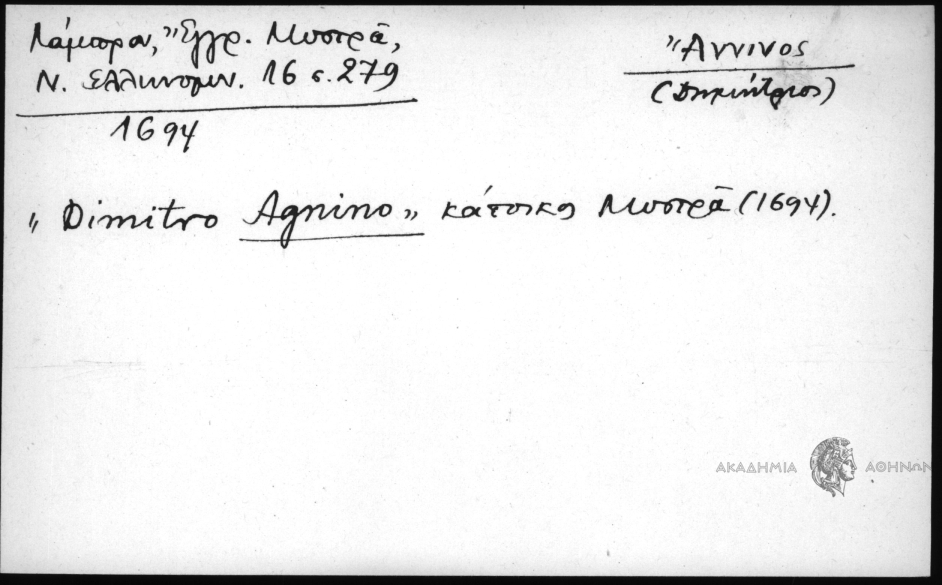 Λάμπρου, Ἔγγρ. Μυστρᾶ,
Ν. Ἑλληνομν. 16 σ. 279
1694
Ἄννινος
(Δημήτριος)
„ Dimitro Agnino „ κάτοικος Μυστρᾶ (1694).
ΑΚΑΔΗΜΙΑ ΑΘΗΝΩΝ